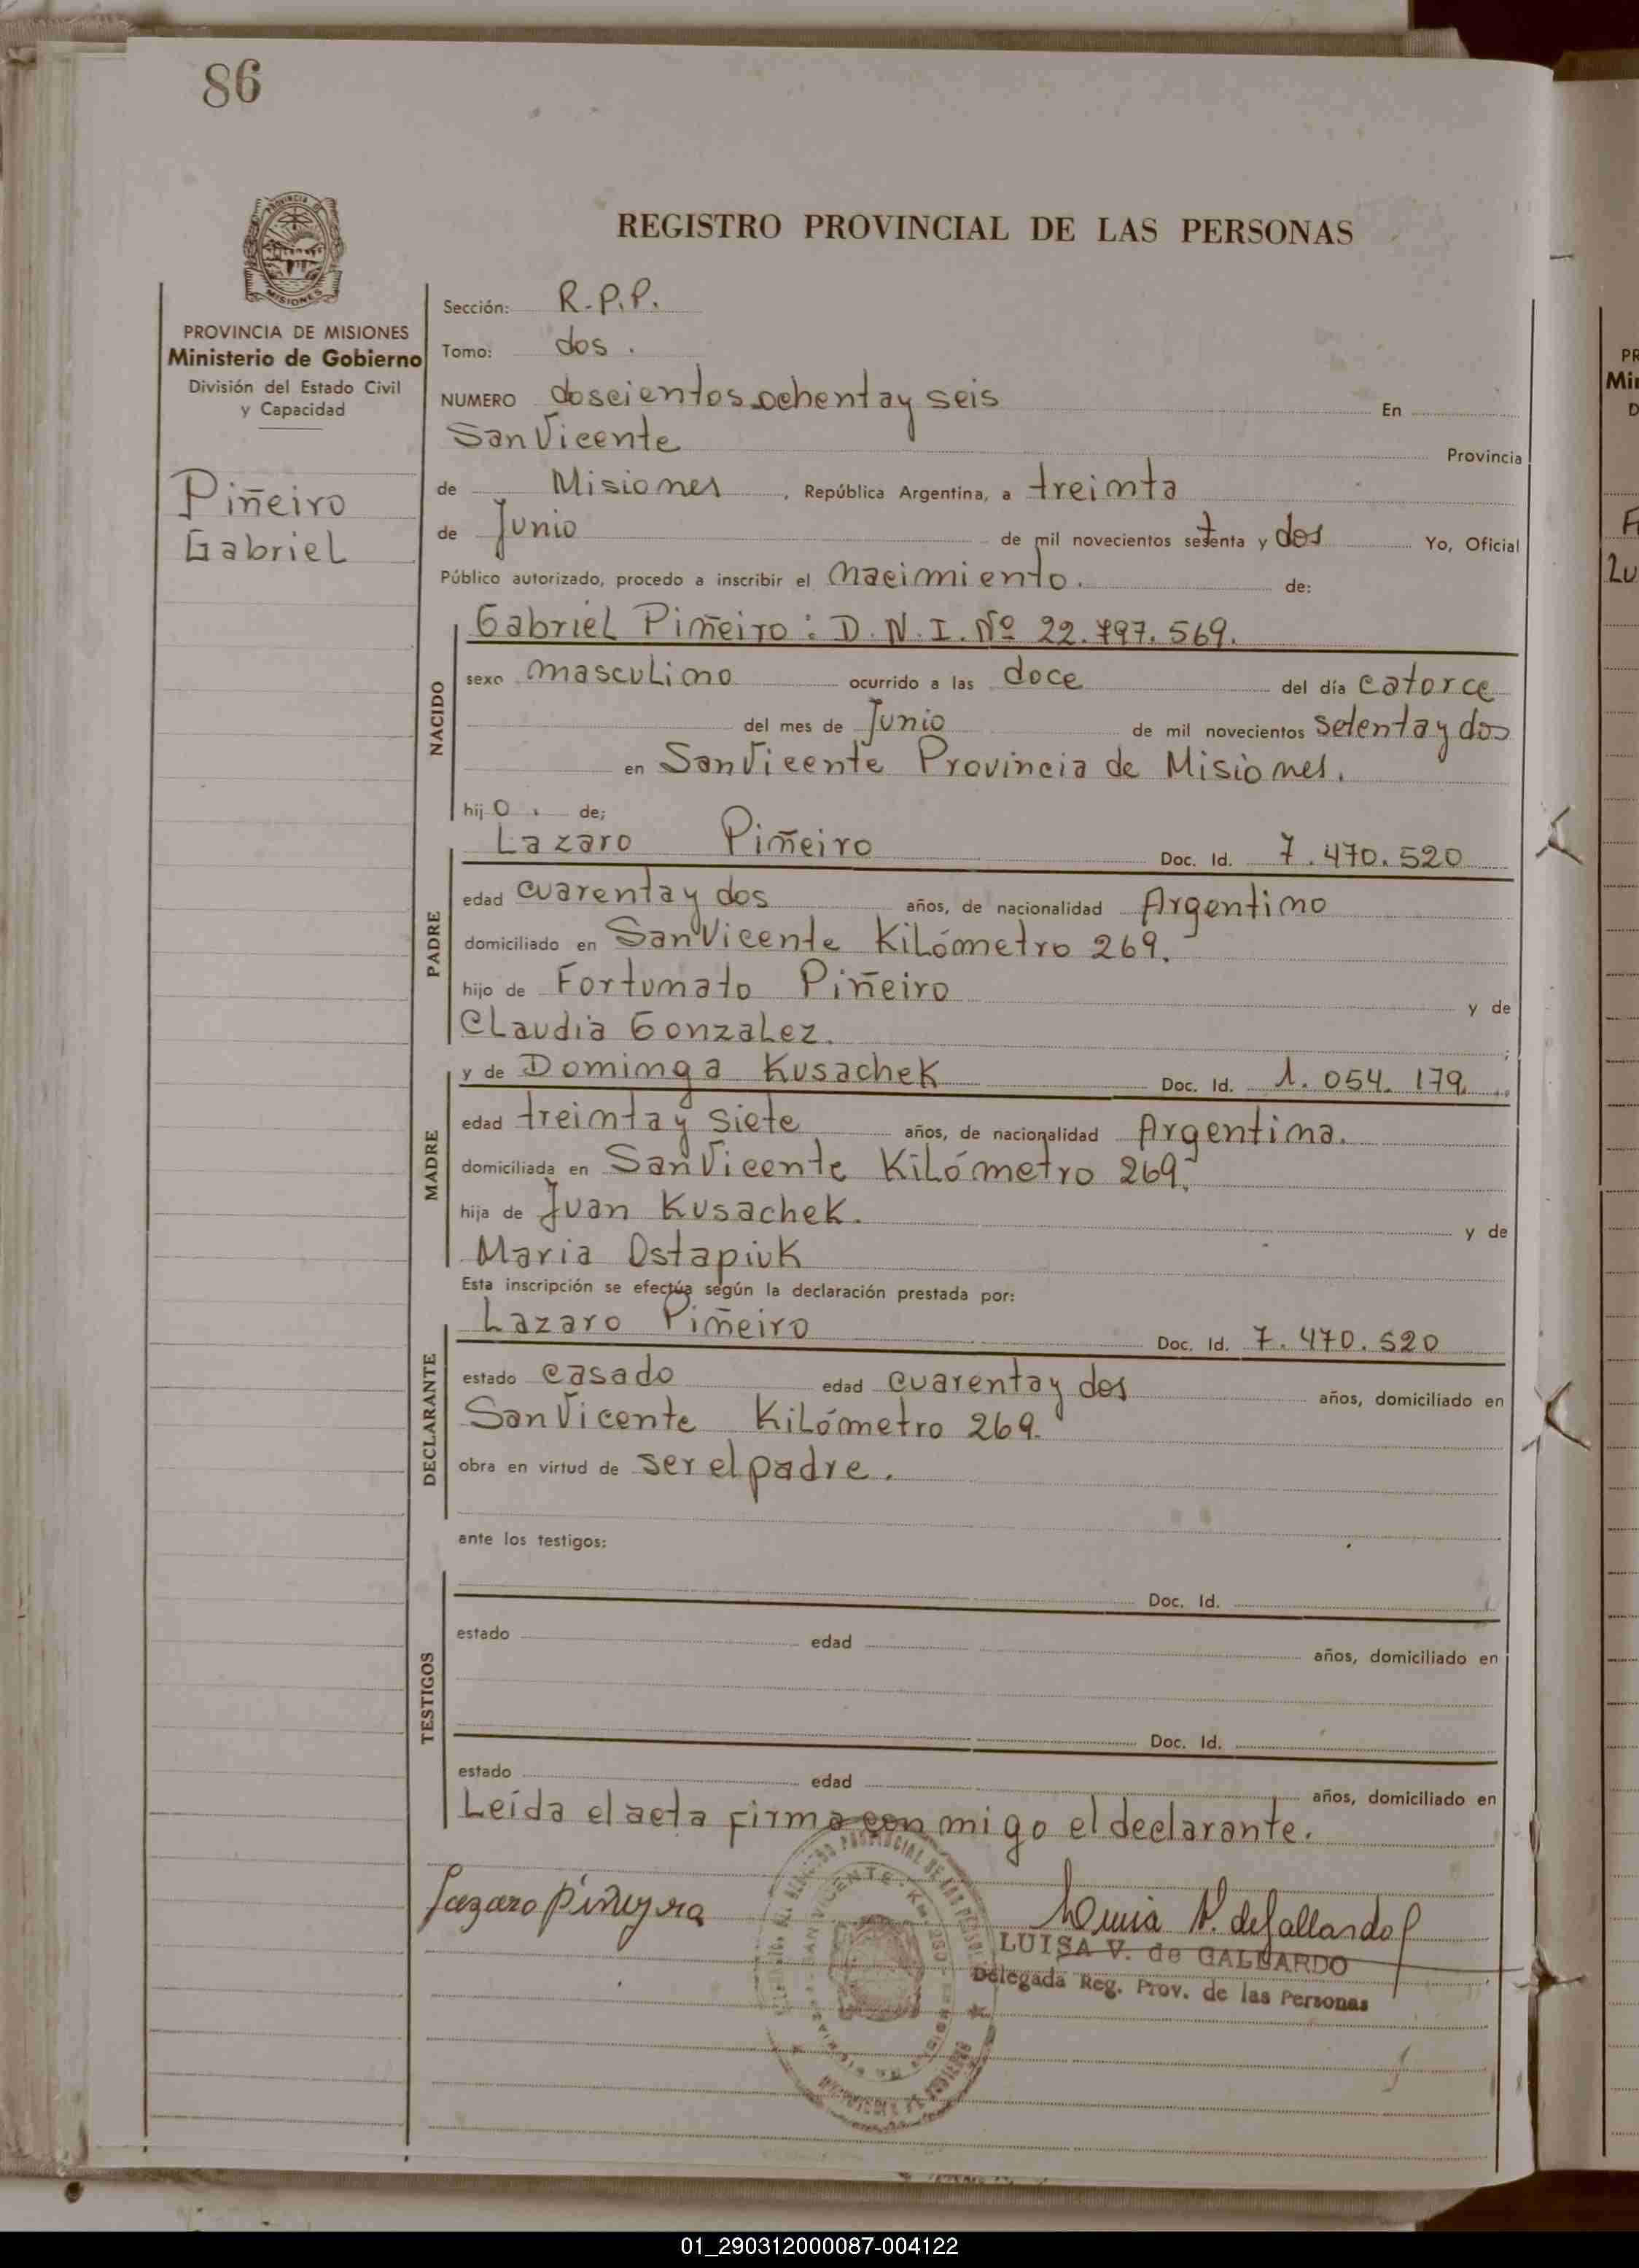 86
PROVINCIA
MISIONES
REGISTRO PROVINCIAL DE LAS PERSONAS
PROVINCIA DE MISIONES
Ministerio de Gobierno
División del Estado Civil
y Capacidad
Piñeiro
Gabriel
Sección: R.P.P.
Tomo: dos.
NUMERO doscientos ochenta y seis En
San Vicente Provincia
de Misiones, República Argentina, a treinta
de Junio de mil novecientos setenta y dos Yo, Oficial
Público autorizado, procedo a inscribir el nacimiento. de:
NACIDO
Gabriel Piñeiro: D.N.I. Nº 22.797.569.
sexo masculino ocurrido a las doce del día catorce
del mes de Junio de mil novecientos setenta y dos
en San Vicente Provincia de Misiones.
hijo. de;
PADRE
Lazaro Piñeiro Doc. Id. 7.470.520
edad cuarenta y dos años, de nacionalidad Argentino
domiciliado en San Vicente Kilómetro 269.
hijo de Fortunato Piñeiro y de
Claudia Gonzalez.
MADRE
y de Dominga Kusachek Doc. Id. 1.054.179.
edad treinta y siete años, de nacionalidad Argentina.
domiciliada en San Vicente Kilómetro 269.
hija de Juan Kusachek. y de
Maria Ostapiuk
Esta inscripción se efectúa según la declaración prestada por:
DECLARANTE
Lazaro Piñeiro Doc. Id. 7.470.520
estado casado edad cuarenta y dos años, domiciliado en
San Vicente Kilómetro 269.
obra en virtud de ser el padre.
ante los testigos:
TESTIGOS
Doc. Id.
estado edad años, domiciliado en
Doc. Id.
estado edad años, domiciliado en
Leída el acta firma con migo el declarante.
Lazaro Piñeyra
Luisa V. de Gallardo
LUISA V. de GALLARDO
Delegada Reg. Prov. de las Personas
01_290312000087-004122